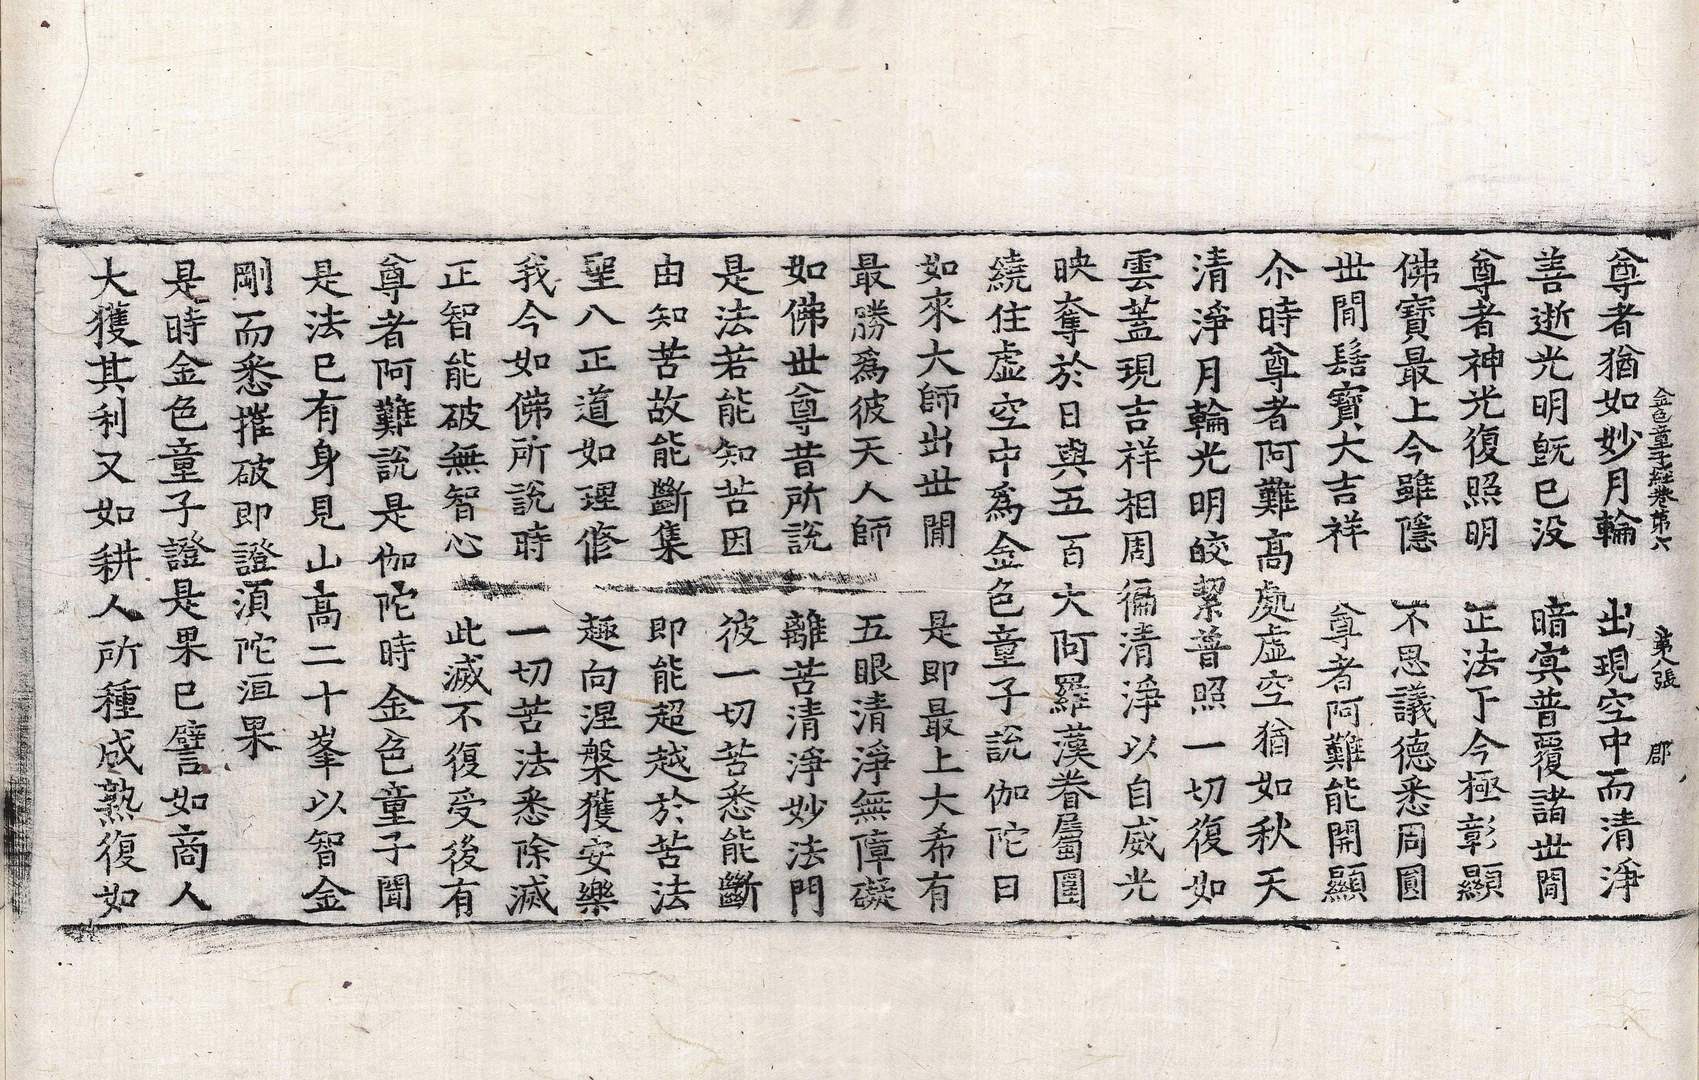 金色童子経卷第六　第八張　郡
尊者猶如妙月輪　出現空中而清淨
善逝光明旣已没　暗㝠普覆諸丗間
尊者神光復照明　正法于今極彰顯
佛寶最上今雖隱　不思議德悉周圓
丗間髻寶大吉祥　尊者阿難能開顯
尒時尊者阿難髙處虛空猶如秋天
清淨月輪光明皎絜普照一切復如
雲蓋現吉祥相周徧清淨以自威光
映奪於日與五百大阿羅漢眷屬圍
繞住虛空中爲金色童子說伽陀曰
如來大師出丗間　是即最上大希有
最勝爲彼天人師　五眼清淨無障礙
如佛丗尊昔所說　離苦清淨妙法門
是法若能知苦因　彼一切苦悉能斷
由知苦故能斷集　即能超越於苦法
聖八正道如理修　趣向涅槃獲安樂
我今如佛所說時　一切苦法悉除滅
正智能破無智心　此滅不復受後有
尊者阿難說是伽陀時金色童子聞
是法已有身見山髙二十峯以智金
剛而悉摧破即證湏陀洹果
是時金色童子證是果已譬如商人
大獲其利又如耕人所種成熟復如